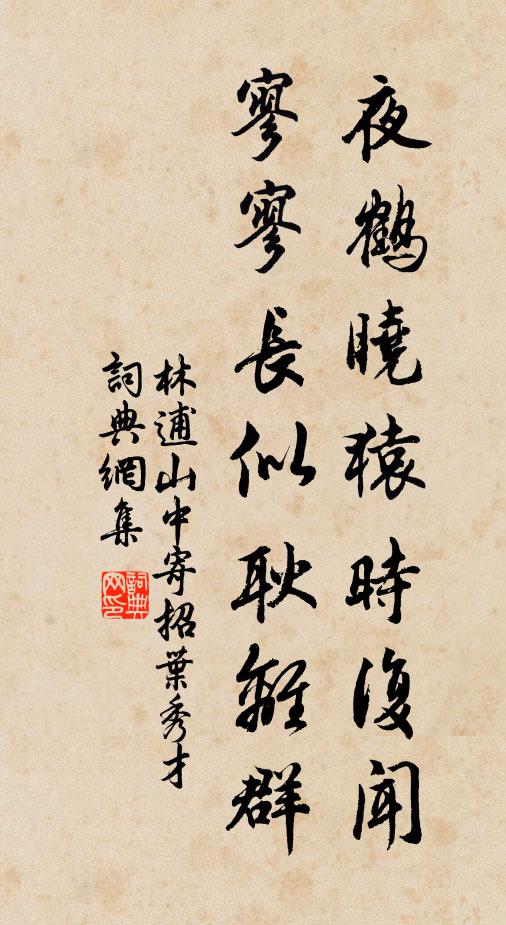 夜鶴曉猿時復聞
寥寥長似耿離群
林逋山中寄招葉秀才
詞典網集
詞典
网印